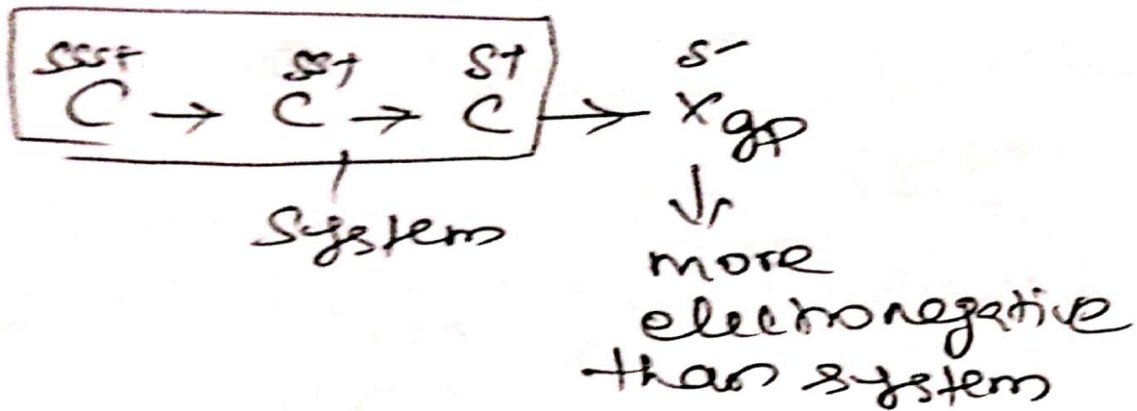 δδδ+ δδ+ δ+ δ-
C → C → C → X gp
System
↓
more
electronegative
than system